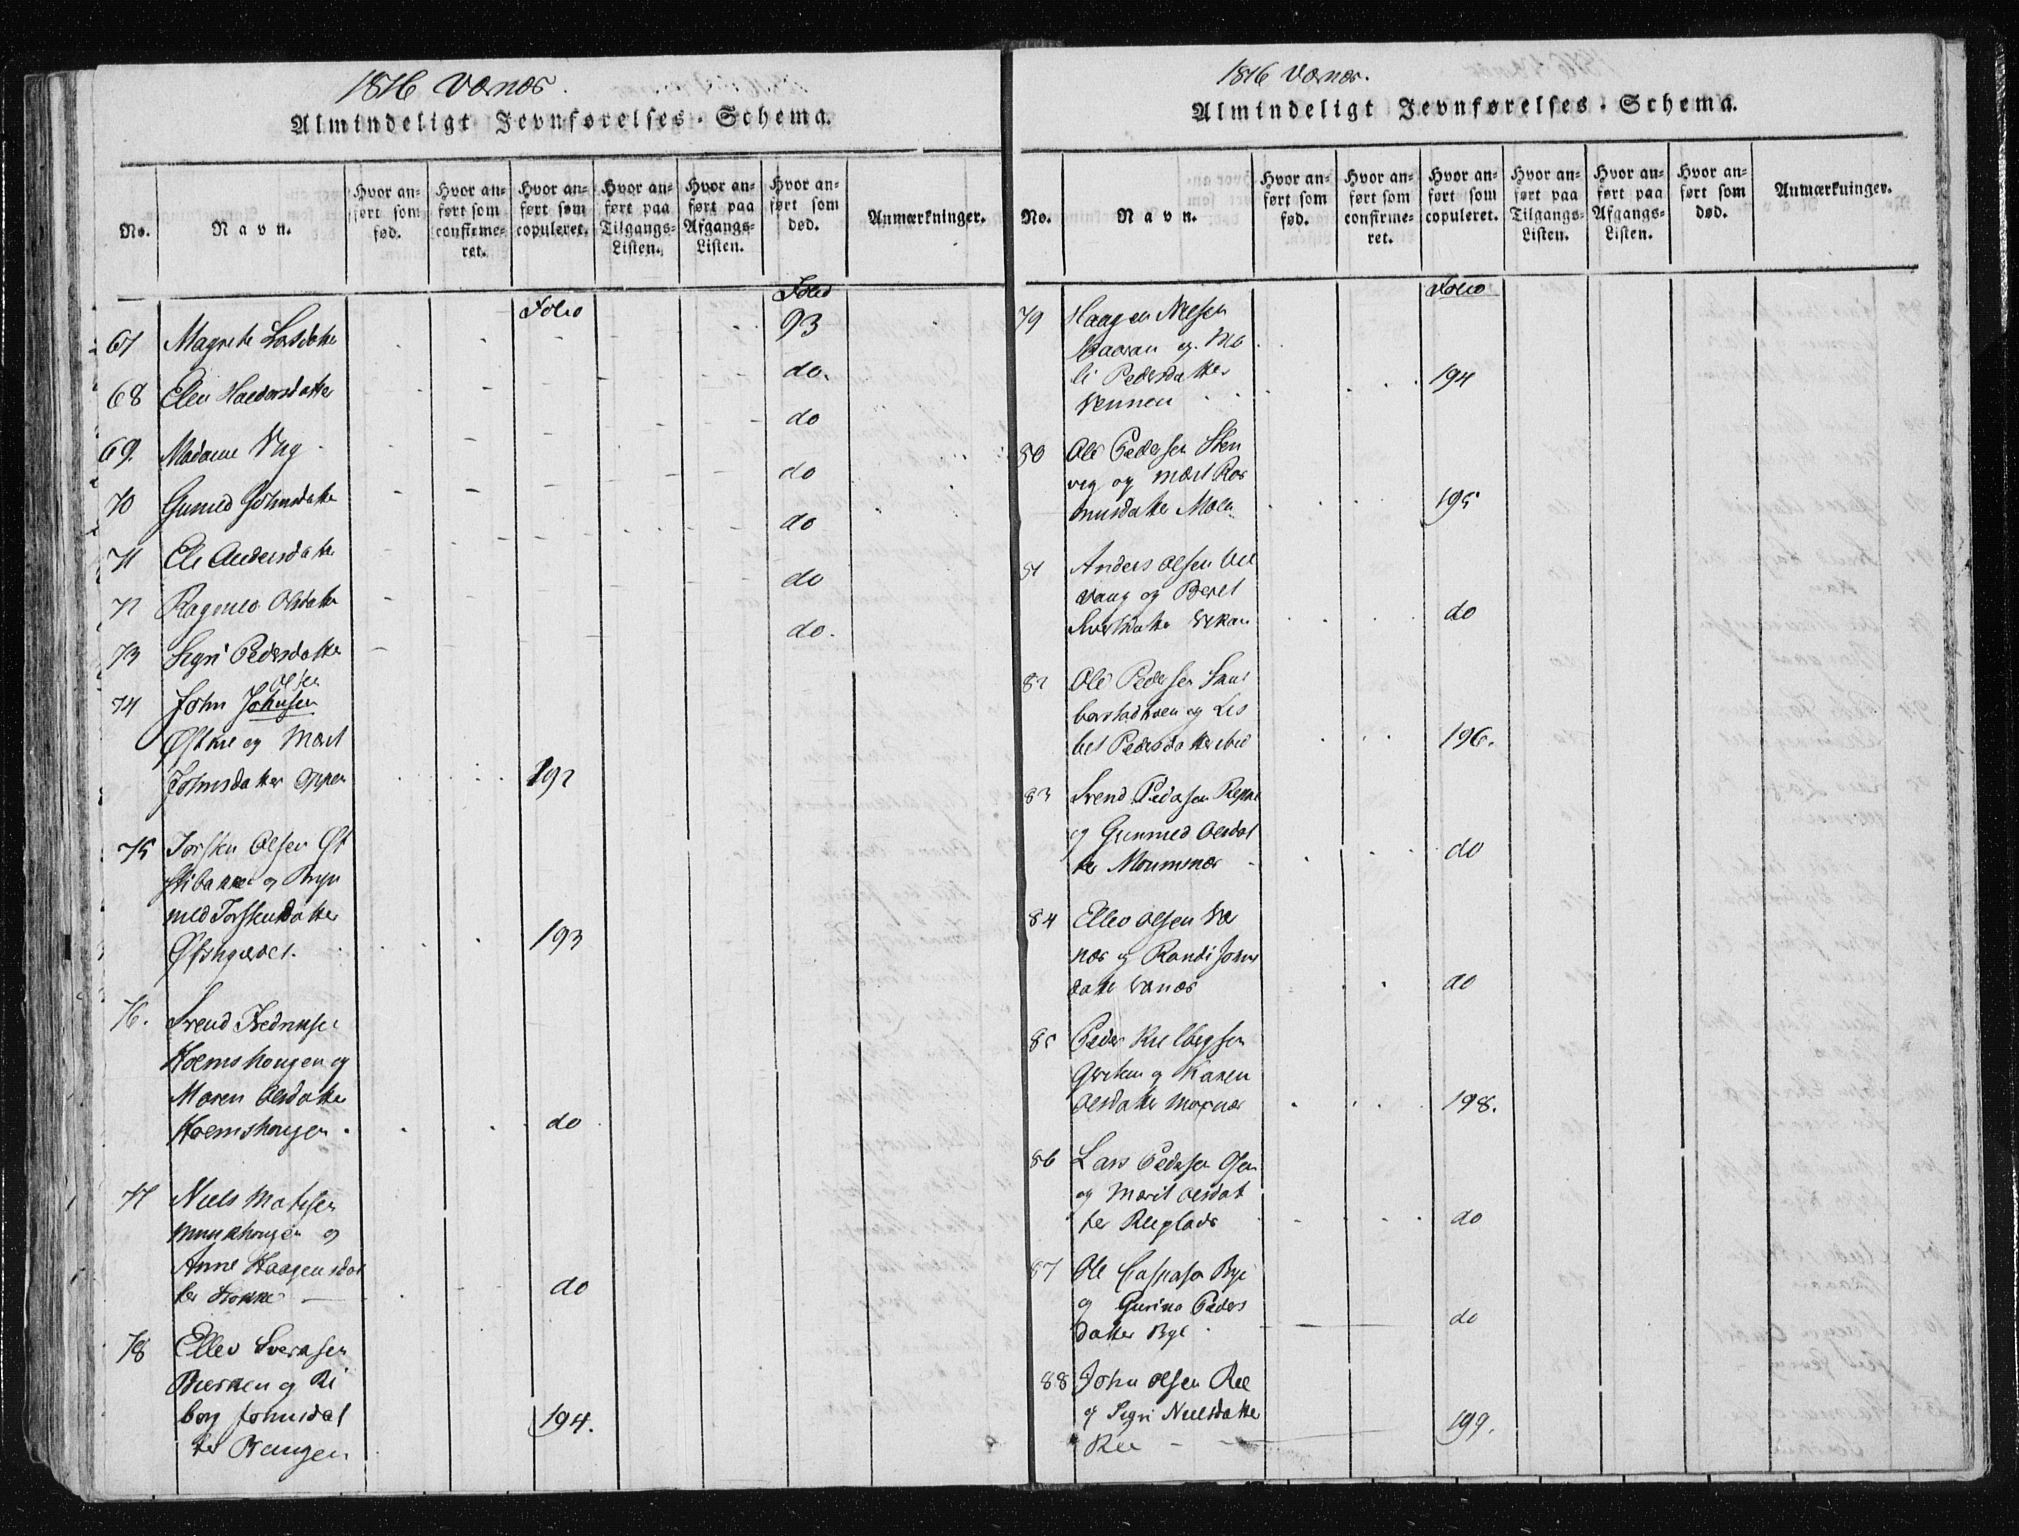 1816 Værnes.
Almindeligt Jevnførelses-Schema.
No.
Navn.
Hvor an-
ført som
fød.
Hvor an-
ført som
confirme-
ret.
Hvor an-
ført som
copuleret.
Hvor an-
ført paa
Tilgangs-
Listen.
Hvor an-
ført paa
Afgangs-
Listen.
Hvor an-
ført som
død.
Anmærkninger.
Folio Folio
67 Magrete Larsdatter 93
68 Elen Haldorsdatter do.
69. Madame do
70 Guruld Johnsdatter do
71 Ele Andersdatter do
72 Ragnild Olsdatter do
73 Sigri Pedersdatter do.
Olsen
74 John Johnsen
og Marit
Johnsdatter 192
75 Torsten Olsen Øst
og
Torstensdatter
193
76. Svend Fredriksen
Holmshougen og
Maren Olsdatter
Holmshougen. do
77 Niels Matisen
Munkhougen og
Anne Haagensdat
ter do
78 Ellev Sversen
og Ri
borg Johnsdat
ter 194.
1816 Værnes.
Almindeligt Jevnførelses-Schema.
No.
Navn.
Hvor an-
ført som
fød.
Hvor an-
ført som
confirme-
ret.
Hvor an-
ført som
copuleret.
Hvor an-
ført paa
Tilgangs-
Listen.
Hvor an-
ført paa
Afgangs-
Listen.
Hvor an-
ført som
død.
Anmærkninger.
Folio
79 Haagen Nielsen
og Ma
li Pedersdatter 194
80 Ole Pedersen Sten
vig og Marit Ras
musdatter Moen 195
81 Anders Olsen
vang og Beret
do
82 Ole Pedersen
og Lis
bet Pedersdatter ibid 196.
83 Svend Pedersen
og Gunnild Olsdat
ter do
84 Ellev Olsen Vær
nes og Randi Johns
datter Værnes do
85 Peder
og Karen
Olsdatter 198.
86 Lars Pedersen
og Marit Olsdat
ter do
87 Ole Caspersen Bye
og Gurina Peders
datter Bye do
88 John Olsen Ree
og Sigri Nielsdatter 199.
Ree